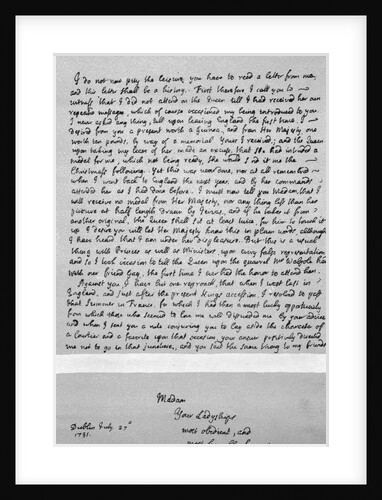 I do not now pity the leisure you have to read a letter from me,
and this letter shall be a history. First therefore I call you to
witness that I did not attend on the Queen till I had received her own
repeated messages, which of course occasioned my being introduced to you.
I never asked any thing, till upon leaving England the first time, I
desired from you a present worth a Guinea, and from Her Majesty one
worth ten pounds, by way of a memorial. Yours I received; and the Queen
upon taking my leave of her made an excuse, that she had intended a
medal for me, which not being ready, she would send it me the
Christmas following. Yet this was never done, nor at all remembred
when I went back to England the next year, and by her commands
attended her as I had done before. I must now tell you Madam, that I
will receive no medal from Her Majesty, nor any thing less than her
picture at half length drawn by Jervas, and if he takes it from
another original, the Queen shall sit at least twice for him to touch it
up. I desire you will let Her Majesty know this in plain words, although
I have heard that I am under her displeasure. But this is a usual
thing with Princes as well as Ministers, upon every false representation
and so I took occasion to tell the Queen upon the quarrel Mr Walpole had
with our friend Gay, the first time I ever had the honor to attend her.
Against you I have but one reproach, that when I was last in
England, and just after the present Kings accession, I resolved to pass
that Summer in France, for which I had then a most lucky opportunity,
from which those who seemed to love me well dissuaded me by your advice
and when I sent you a note conjuring you to lay aside the character of
a Courtier and a favorite upon that occasion, your answer positively directed
me not to go in that juncture, and you said the same thing to my friends
Madam
Your Ladyships
Dublin July 27th
most obedient, and
1731.